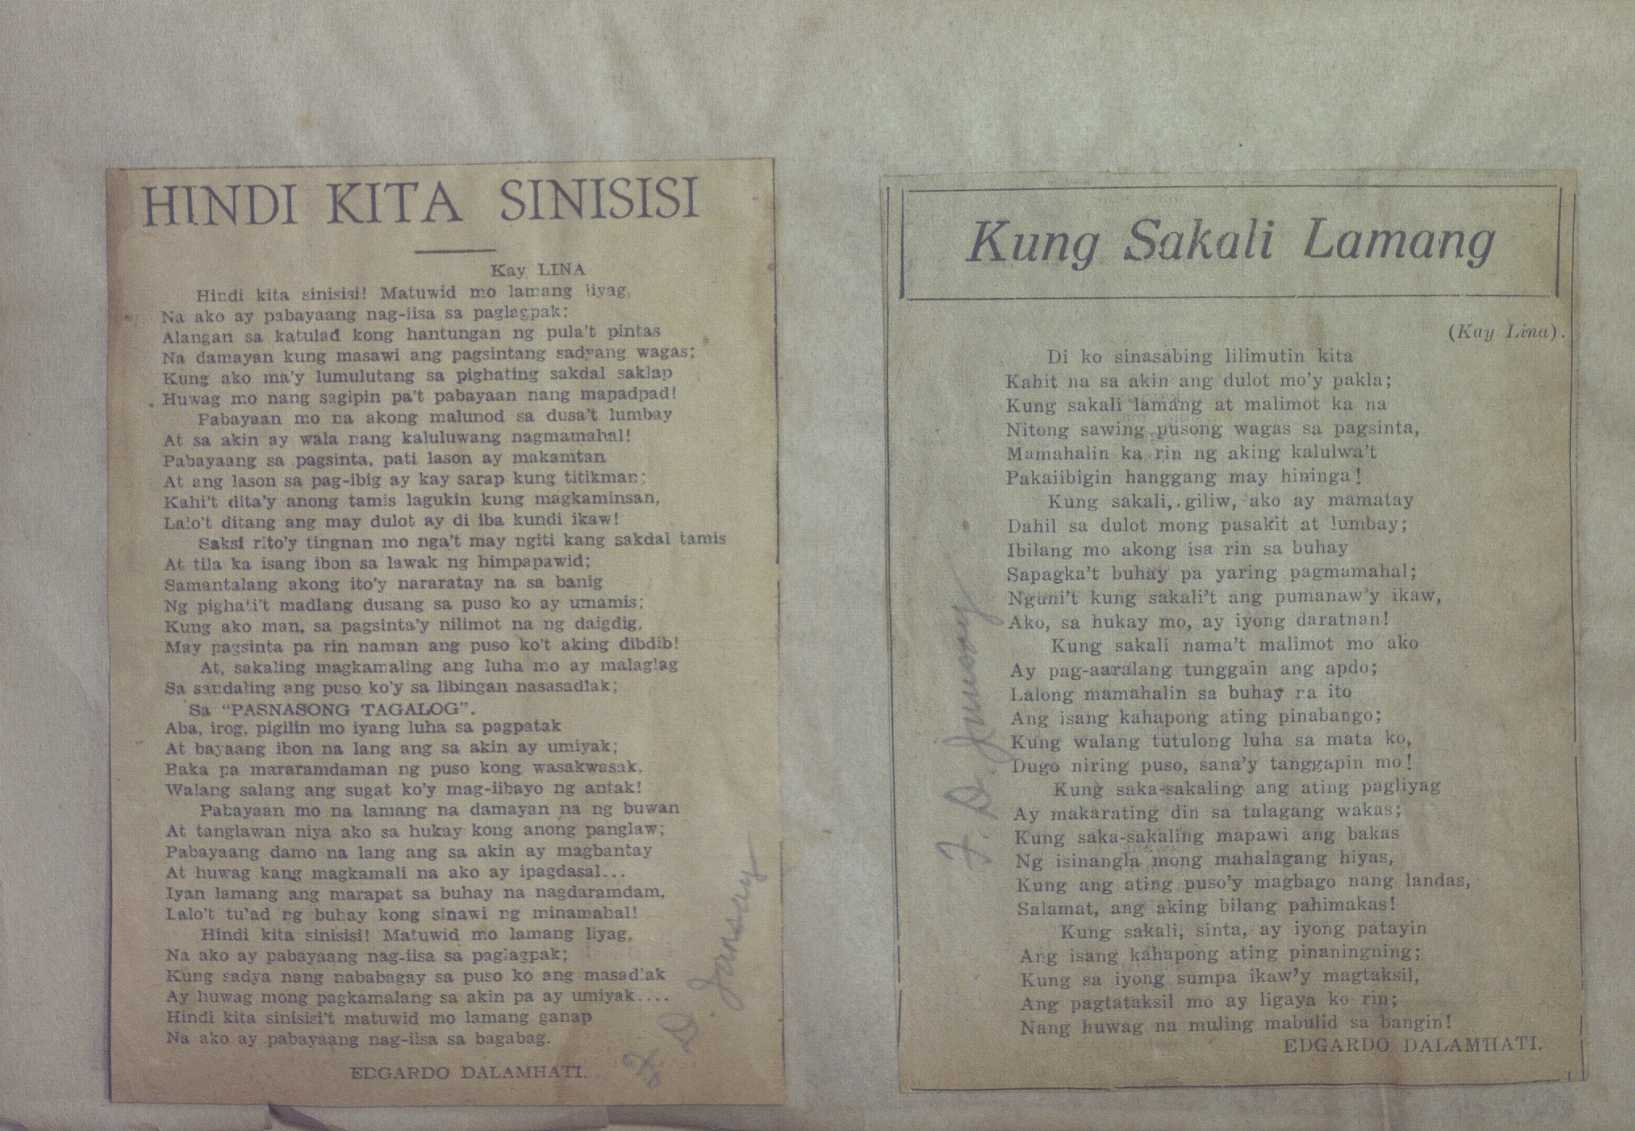 HINDI KITA SINISISI
Kay LINA
Hindi kita sinisisi! Matuwid mo lamang liyag,
Na ako ay pabayaang nag-iisa sa paglagpak;
Alangan sa katulad kong hantungan ng pula't pintas
Na damayan kung masawi ang pagsintang sadyang wagas;
Kung ako ma'y lumulutang sa pighating sakdal saklap
Huwag mo nang sagipin pa't pabayaan nang mapadpad!
Pabayaan mo na akong malunod sa dusa't lumbay
At sa akin ay wala nang kaluluwang nagmamahal!
Pabayaang sa pagsinta, pati lason ay makamtan
At ang lason sa pag-ibig ay kay sarap kung titikman;
Kahi't dita'y anong tamis lagukin kung magkaminsan,
Lalo't ditang ang may dulot ay di iba kundi ikaw!
Saksi rito'y tingnan mo nga't may ngiti kang sakdal tamis
At tila ka isang ibon sa lawak ng himpapawid;
Samantalang akong ito'y nararatay na sa banig
Ng pighati't madlang dusang sa puso ko ay umamis;
Kung ako man, sa pagsinta'y nilimot na ng daigdig,
May pagsinta pa rin naman ang puso ko't aking dibdib!
At, sakaling magkamaling ang luha mo ay malaglag
Sa sandaling ang puso ko'y sa libingan nasasadlak;
Sa "PASNASONG TAGALOG".
Aba, irog, pigilin mo iyang luha sa pagpatak
At bayaang ibon na lang ang sa akin ay umiyak;
Baka pa mararamdaman ng puso kong wasakwasak,
Walang salang ang sugat ko'y mag-iibayo ng antak!
Pabayaan mo na lamang na damayan na ng buwan
At tanglawan niya ako sa hukay kong anong panglaw;
Pabayaang damo na lang ang sa akin ay magbantay
At huwag kang magkamali na ako ay ipagdasal...
Iyan lamang ang marapat sa buhay na nagdaramdam,
Lalo't tulad ng buhay kong sinawi ng minamahal!
Hindi kita sinisisi! Matuwid mo lamang liyag,
Na ako ay pabayaang nag-iisa sa paglagpak;
Kung sadya nang nababagay sa puso ko ang masadlak
Ay huwag mong pagkamalang sa akin pa ay umiyak....
Hindi kita sinisisi't matuwid mo lamang ganap
Na ako ay pabayaang nag-iisa sa bagabag.
EDGARDO DALAMHATI.
F. D. Jansay
Kung Sakali Lamang
(Kay Lina).
Di ko sinasabing lilimutin kita
Kahit na sa akin ang dulot mo'y pakla;
Kung sakali lamang at malimot ka na
Nitong sawing pusong wagas sa pagsinta,
Mamahalin ka rin ng aking kalulwa't
Pakaiibigin hanggang may hininga!
Kung sakali, giliw, ako ay mamatay
Dahil sa dulot mong pasakit at lumbay;
Ibilang mo akong isa rin sa buhay
Sapagka't buhay pa yaring pagmamahal;
Nguni't kung sakali't ang pumanaw'y ikaw,
Ako, sa hukay mo, ay iyong daratnan!
Kung sakali nama't malimot mo ako
Ay pag-aaralang tunggain ang apdo;
Lalong mamahalin sa buhay na ito
Ang isang kahapong ating pinabango;
Kung walang tutulong luha sa mata ko,
Dugo niring puso, sana'y tanggapin mo!
Kung saka-sakaling ang ating pagliyag
Ay makarating din sa talagang wakas;
Kung saka-sakaling mapawi ang bakas
Ng isinangla mong mahalagang hiyas,
Kung ang ating puso'y magbago nang landas,
Salamat, ang aking bilang pahimakas!
Kung sakali, sinta, ay iyong patayin
Ang isang kahapong ating pinaningning;
Kung sa iyong sumpa ikaw'y magtaksil,
Ang pagtataksil mo ay ligaya ko rin;
Nang huwag na muling mabulid sa bangin!
EDGARDO DALAMHATI.
F. D. Jansay